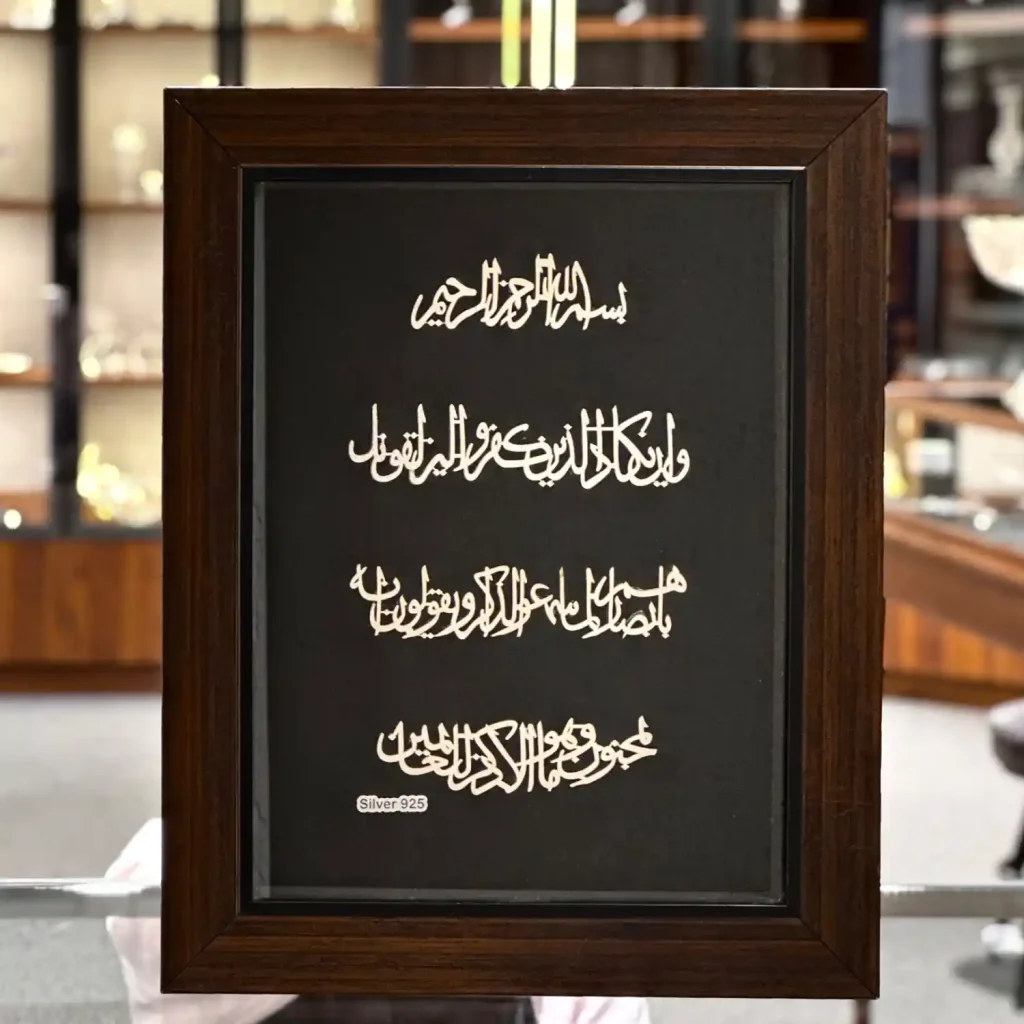 بسم الله الرحمن الرحيم
وإن يكاد الذين كفروا ليزلقونك
بأبصارهم لما سمعوا الذكر ويقولون إنه
لمجنون وما هو إلا ذكر للعالمين
Silver 925